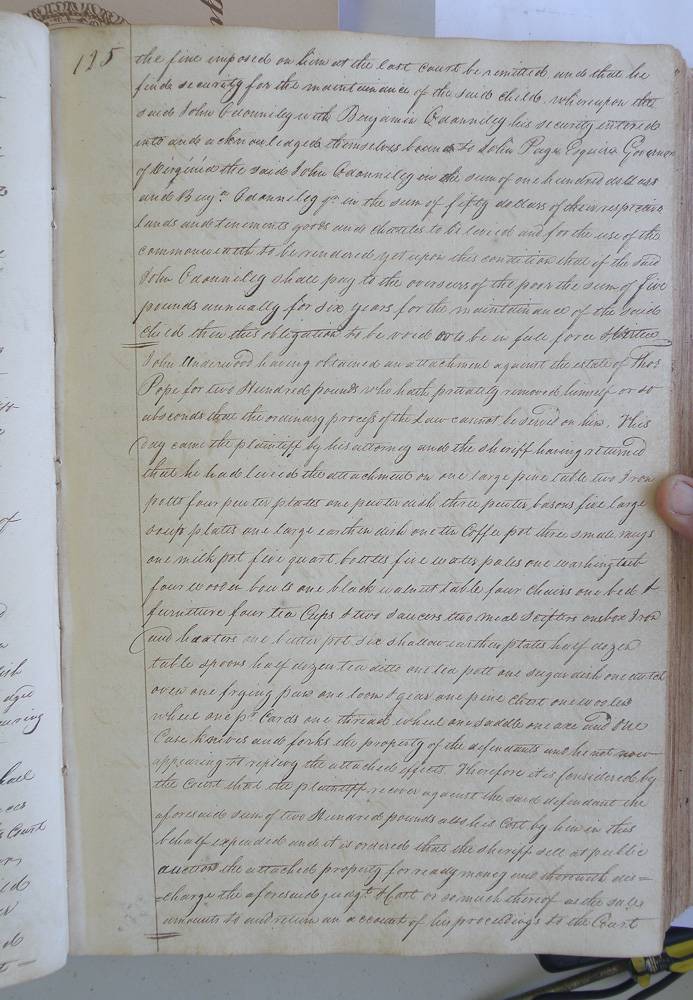 125
the fine imposed on him at the last court be remitted and that he
finds security for the maintainance of the said child whereupon the
said John Odonniley with Benjamin Odonniley his security entered
into and acknowledged themselves bound to John Page Esquire Governor
of Virginia the said John Odonniley in the sum of one hundred dollars
and Benjn. Odonniley in the sum of fifty dollars of their respective
lands and tenements goods and chattles to be levied and for the use of the
commonwealth to be rendered yet upon this condition that if the said
John Odonniley shall pay to the overseers of the poor the sum of five
pounds annually for six years for the maintainance of the said
child then this obligation to be void or to be in full force
John Underwood having obtained an attachment against the estate of Thos
Pope for two Hundred pounds who hath privately removed himself or so
absconds that the ordinary process of the Law cannot be served on him. This
day came the plaintiff by his attorney and the sheriff having returned
that he had levied the attachment on one large pine table two Iron
potts four pewter plates one pewter dish three pewter basons five large
soup plates one large earthen dish one tin Coffe pot three small mugs
one milk pot five quart bottles five water pales one washing tub
four wooden bowls one black walnut table four chairs one bed &
furniture four tea Cups & two saucers two meal sifters one box Iron
and heaters one butter pot six shallow earthen plates half dozen
table spoons half dozen tea ditto one tea pott one sugar dish one dutch
oven one frying pan one loom & gear one pine chest one woolen
wheel one pr. Cards one thread wheel one saddle one axe and one
Case knives and forks the property of the defendants and he not now
appearing to replevy the attached effects Therefore it is Considered by
the Court that the plaintiff recover against the said defendant the
aforesaid sum of two Hundred pounds also his Cost by him in this
behalf expended and it is ordered that the sheriff sell at public
auction the attached property for ready money and therewith dis=
=charge the aforesaid judgt. & Cost or so much thereof as the sale
amounts to and return an account of his proceedings to the Court